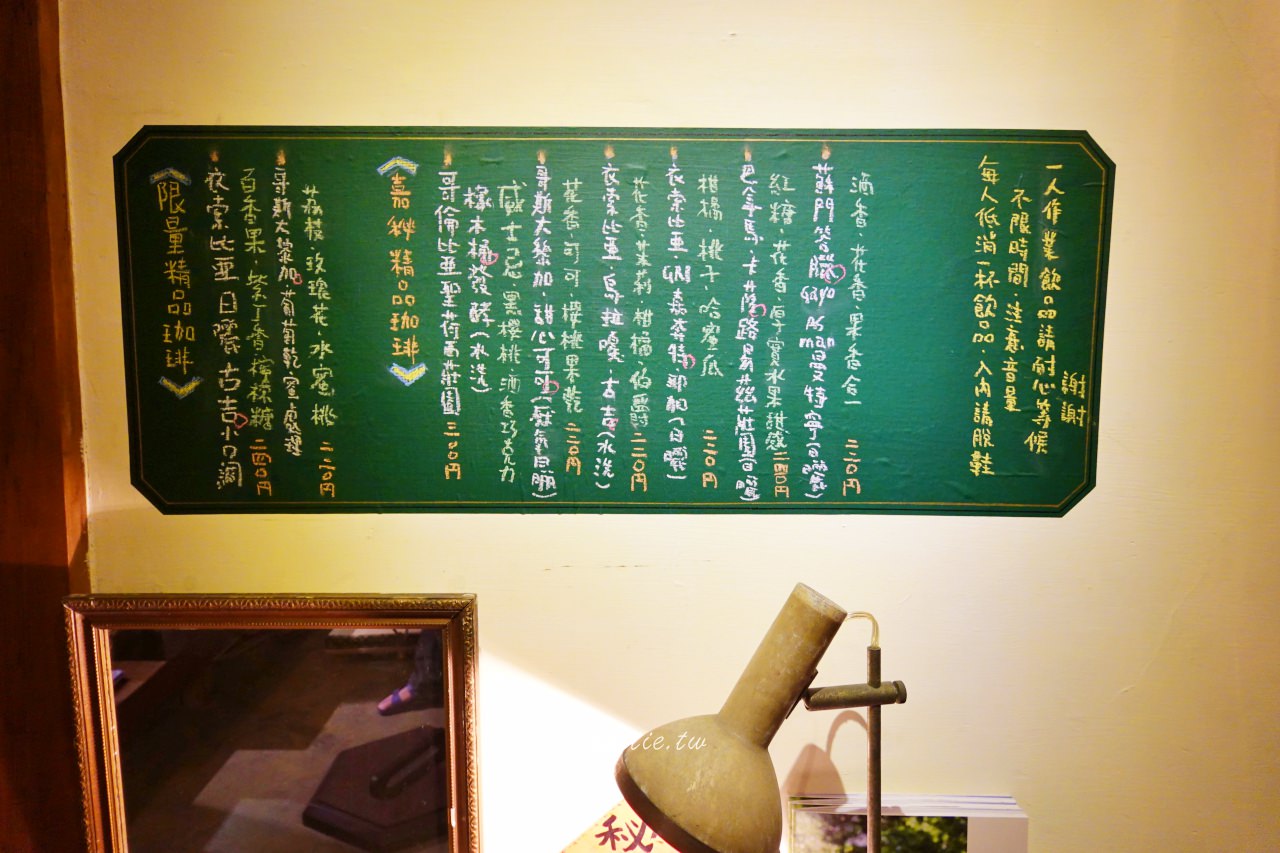 《限量精品珈琲》
衣索比亞 日曬 古吉
百香果.紫丁香檸檬糖 二四〇円
哥斯大黎加.葡萄乾蜜處理
荔枝.玫瑰花 水蜜桃 二二〇円
《嘉秘精品珈琲》
哥倫比亞聖荷西莊園 三〇〇円
橡木桶發酵(水洗)
威士忌.黑櫻桃.酒香巧克力
哥斯大黎加.甜心可可(厭氧日曬)
花香可可 櫻桃果乾 二二〇円
衣索比亞.烏拉嘎.古吉(水洗)
花香.茉莉.柑橘.伯爵 二二〇円
衣索比亞.GN1 森蒂特.耶加(日曬)
柑橘.桃子.哈蜜瓜 二二〇円
巴拿馬.卡莎路易茲莊園(日曬)
紅糖.花香.厚實水果甜感 二四〇円
蘇門答臘 Gayo Asman 曼特寧(日曬)
酒香.花香.果香合一 二二〇円
一人作業飲品請耐心等候
不限時間 注意音量
每人低消一杯飲品.入內請脫鞋
謝謝
秘
ie.tw